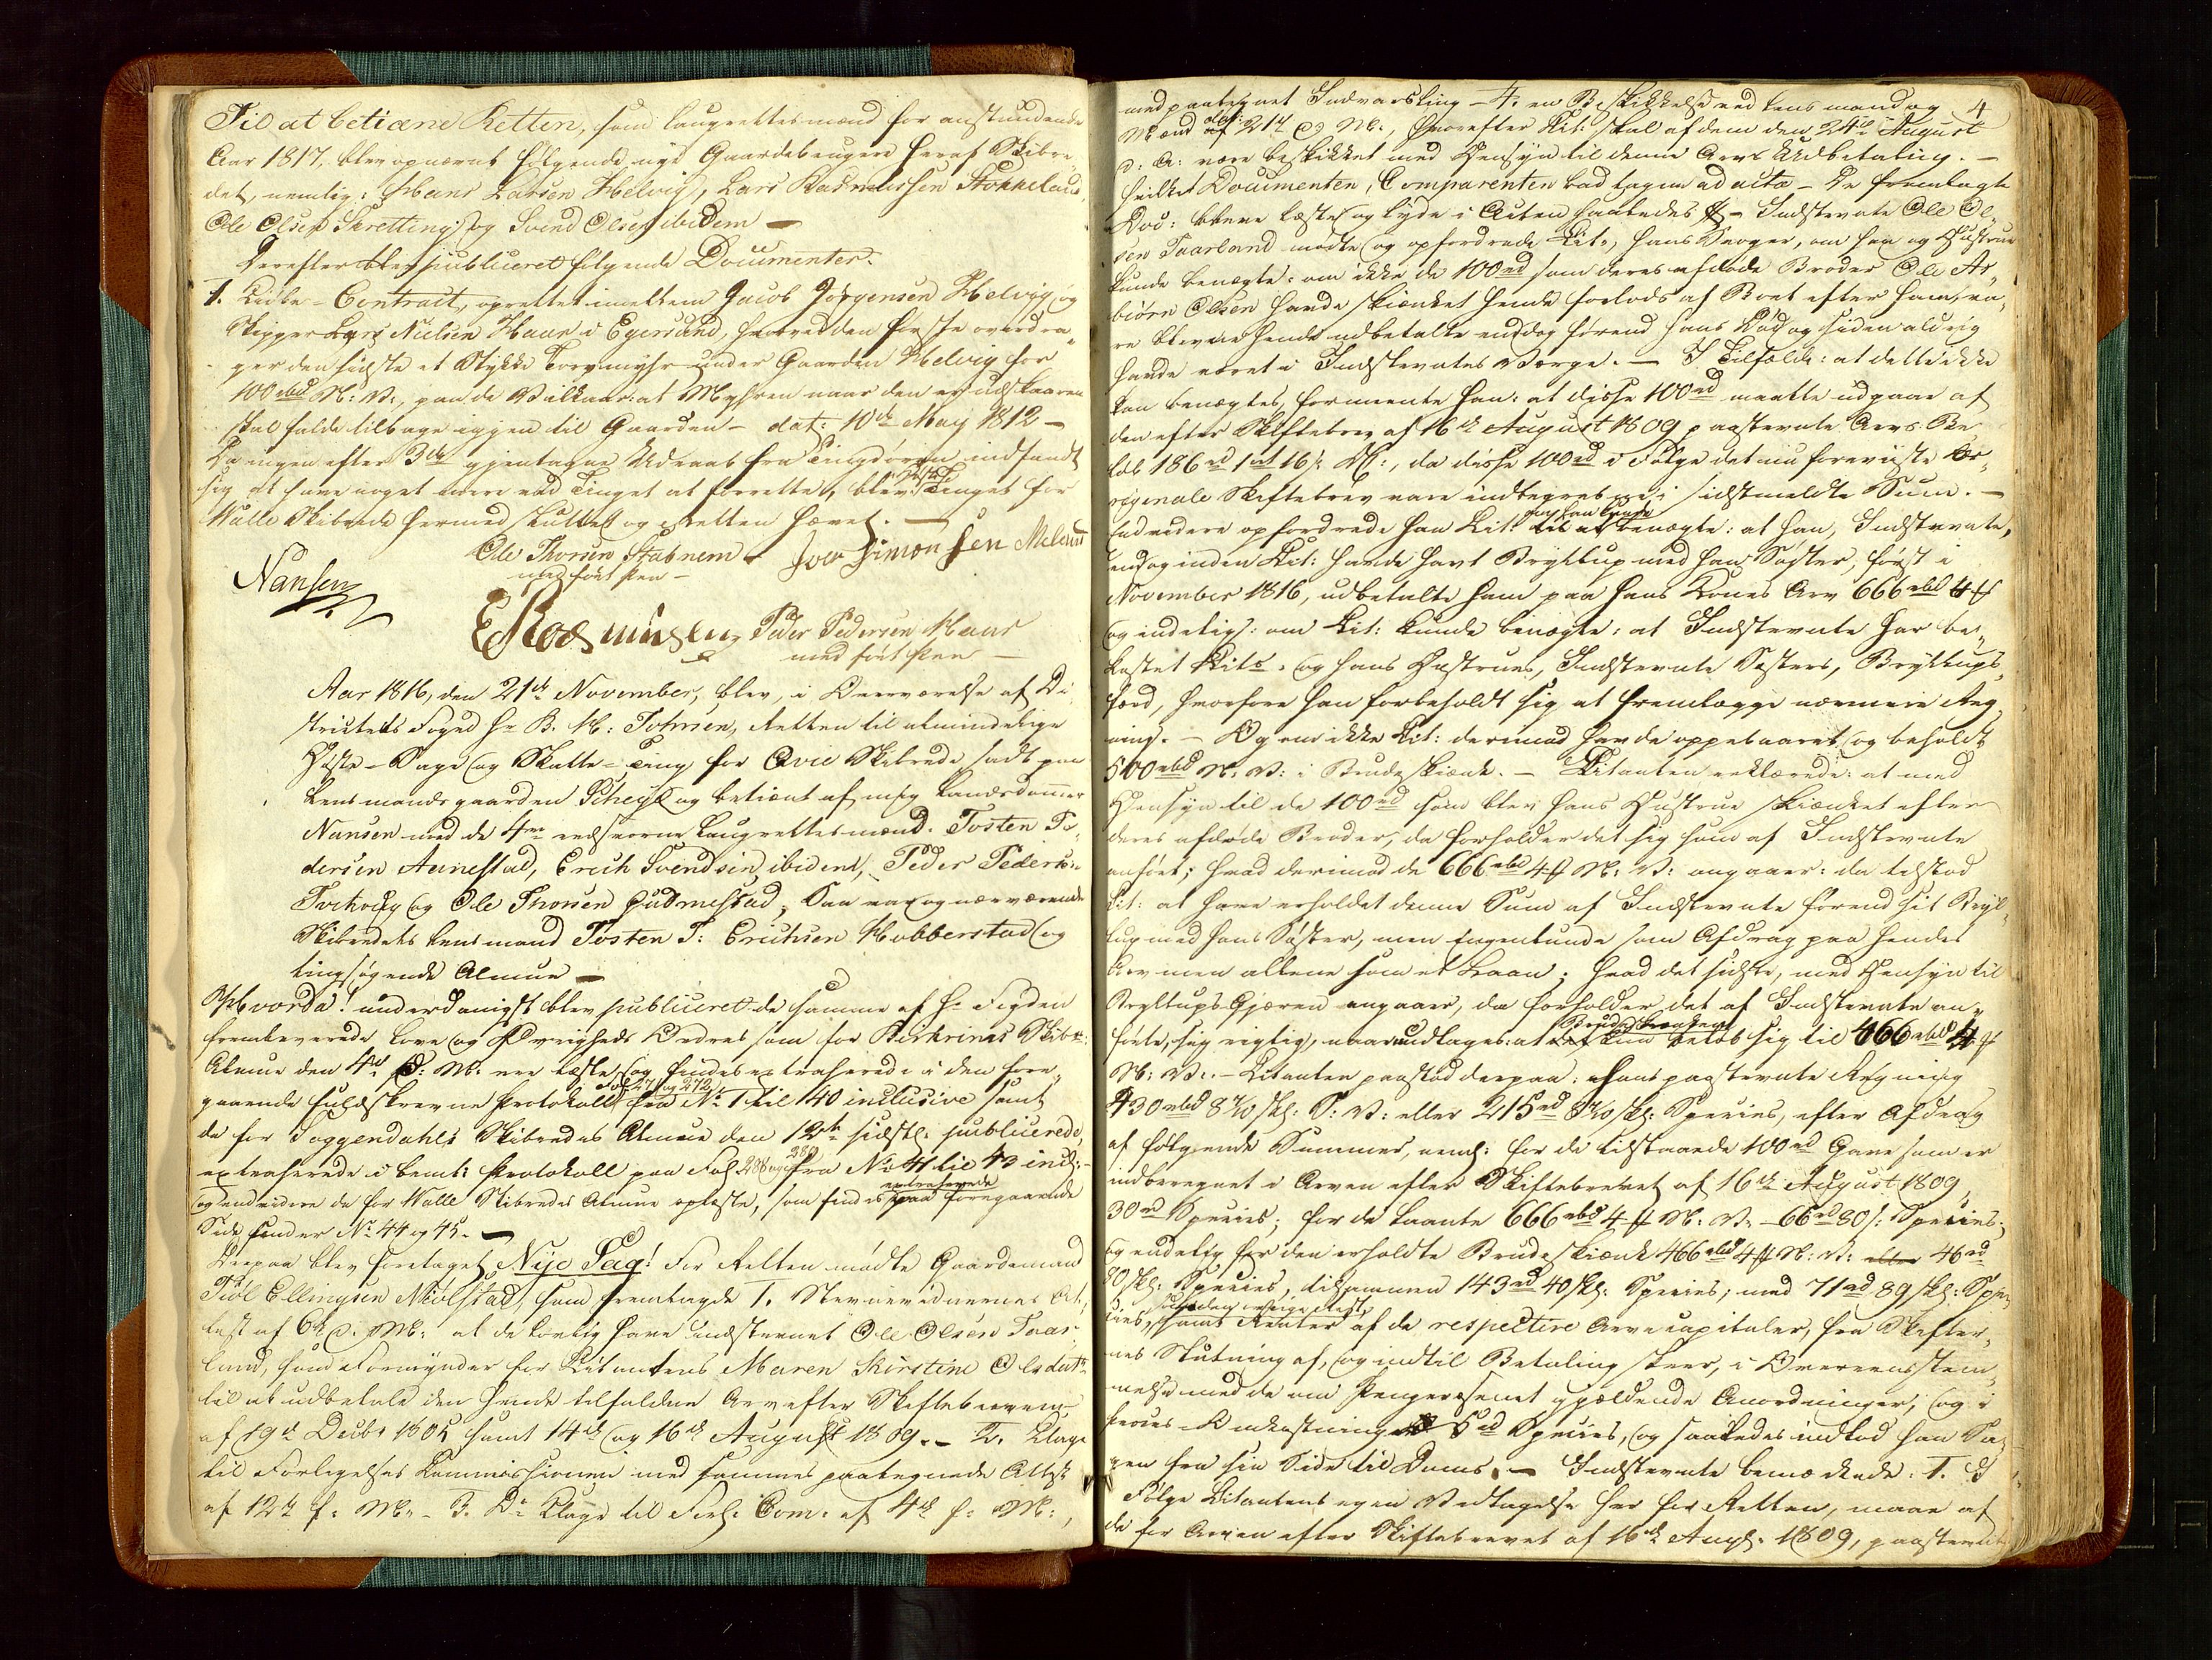 Til at betiæne Retten, som Laugrettesmænd for anstundende
Aar 1817, blev opnævnt følgende nye Gaardebrugere heraf Skibre„
det, nemlig: Hans Larsen Helvig, Lars Rasmussen Stokkeland,
Ole Olsen Skretting og Svend Olsen ibidem —
Derefter blev publiceret følgende Documenter.
1. Leie-Contract, oprettet imellem Jacob Jørgensen Helvig og
Skipper Lars Nielsen Haar i Egersund, hvorved den første overdra„
ger den sidste et Stykke Torvmyhr under Gaarden Helvig for
100 rbd N: V:, paa de Vilkaar: at Myhren naar den er udskaaren
skal falde tilbage igjen til Gaarden — dat: 10de May 1812 —
Da ingen efter 3de gjentagne Udraab fra Tingdøren indfandt
sig at have noget mere ved Tinget at forrette, blev Høste Tinget for
Walle Skibrede hermed sluttet og Retten hævet. —
Ole Thorsen Stabnem Iver Simonsen Meland
med ført Pen —
Nansen
E Rosmusen Peder Pedersen Haar
med ført Pen —
Aar 1816, den 21de November, blev, i Overværelse af Di„
strictets Foged Hr B. H: Tohrsen, Retten til almindelige
Høste- Sage- og Skatte-Ting for Ovie Skibrede sadt paa
Lensmandsgaarden Scheje og betiænt af mig Landsdommer
Nansen med de 4re eedsvorne Laugrettesmænd: Tosten Pe„
dersen Aarrestad, Erich Svendsen ibidem, Peder Pedersen
Torhoug og Ole Thorsen Gudmestad; Saa var og nærværende
Skibredets Lensmand Tosten T: Erichsen Hobberstad og
tingsøgende Almue —
Hvorda! underdanigst blev publiceret de samme af Hr Fogden
frembeverede Love og Øvrigheds Ordres som for Birkrims Skibr:
Almue den 4de d: M: ere læste, og findes extraherede i den fore„
gaaende fuldskrevne Protokoll Fol 271 og 272 fra No 1 til 40 inclusive samt
de for Soggendahls Skibredes Almue den 12te sidstl: publicerede,
extraherede i bemte Protokoll paa Fol: 286 og 289 fra No 41 til 43 incl:
og endvidere de for Walle Skibredes Almue oplæste, som findes extraherede paa foregaaende
Side under No 44 og 45. —
Derpaa blev foretaget Nye Sag! For Retten mødte Gaardemand
Tiøl Ellingsen Miølstad, som fremlagde 1. Stevnevidnernes At„
test af 6te d: M: at de lovlig have indstevnet Ole Olsen Taar„
land, som Formynder for Citantens Maren Kirstine Olsdatr
til at udbetale den hende tilfaldne Arv efter Skiftebrevene
af 19de Decbr 1802 samt 14de og 16de August 1809. — 2. Klage
til Forligelses Commissionen med sammes paategnede Attest
af 12te f: M: — 3. Do Klage til Forl: Com: af 4de f: M:,
4
med paategnet Indvarsling — 4. en Beskikkelse ved Lensmand og
Mænd dat: af 21de d: M:, hvorefter Cit: skal af dem den 24de August
d: A: være beskikket med Hensyn til denne Arvs Udbetaling. —
hvilket Documenter, Comparenten bad tagne ad acta — De fremlagte
Doc: bleve læste og lyde i Acten saaledes # — Indstevnte Ole Ol„
sen Taarland mødte og opfordrede Cit:, hans Svoger, om han og Hustrue
kunde benægte: om ikke de 100 rd som deres afdøde Broder Ole As„
biørn Olsen havde skiænket hende forlods af Boet efter ham, væ„
re blevne hende udbetalte endog førend hans Død og siden aldrig
havde været i Indstevntes Værge. — I Tilfælde: at dette ikke
kan benægtes, formeente han: at disse 100 rd maatte udgaae af
den efter Skiftebrev af 16de August 1809 paastevnte Arvs Be„
løb 186 rd 1 ort 16 s: D:, da disse 100 rd i Følge det nu foreviiste Or„
riginale Skiftebrev vare indbegrebne i sidstmeldte Sum. —
Endvidere opfordrede han Cit: om han kunde til at benægte: at han, Indstevnte,
endog inden Cit: havde havt Bryllup med hans Søster, først i
November 1816, udbetalte ham paa hans Kones Arv 666 rbd 4 #
og endeligt: om Cit: kunde benægte: at Indstevnte har be„
kostet Cits. og hans Hustrues, Indstevnte Søsters, Bryllups„
færd, hvorfore han forbeholdt sig at fremlægge nærmere Reg„
ning. — Og om ikke Cit: derimod havde oppebaaret og beholdt
500 rbd N: V: i Brudeskiænk. — Citanten erklærede: at med
Hensyn til de 100 rd som blev hans Hustrue skiænket efter
deres afdøde Broder, da forholder det sig som af Indstevnte
anført; hvad derimod de 666 rbd 4 # N: V: angaaer: da tilstod
Cit: at have erholdet denne Sum af Indstevnte førend sit Bryl„
lup med hans Søster, men ingenlunde som Afdrag paa hendes
Arv men allene som et Laan; hvad det sidste, med Hensyn til
Bryllups Gjæren angaaer, da forholder det af Indstevnte an„
førte, sig rigtig, naar undtages: at Brudeskiænken kun beløb sig til 466 rbd 4 #
N: V: — Citanten paastod derpaa: hans paastevnte Regning
430 rbd 8 7/10 skl: S: V: eller 215 rd 8 7/10 skl: Species, efter Afdrag
af følgende Summer, neml: for de tilstaaede 100 rd Gave som er
indberegnet i Arven efter Skiftebrevet af 16de August 1809,
30 rd Species; for de laante 666 rbd 4 # N: V. — 66 rd 80 s: Species;
og endelig for den erholdte Brudeskiænk 466 rbd 4 # N: V: eller 46 rd
80 skl: Species, tilsammen 143 rd 40 skl: Species; med 71 rd 89 skl: Spe„
cies, samt Renter af de respective Arvecapitaler, fra Skifter„
nes Slutning af, og indtil Betaling skeer, i Overeensstem„
melse med de om Pengevæsenet gjældende Anordninger; og i
Proces-Omkostninger 5 rd Species, og saaledes indlod han Sa„
gen fra sin Side til Doms. — Indstevnte bemærkede: 1. I
Følge Citantens egen Vedtagelse her for Retten, maae af
de for Arven efter Skiftebrevet af 16de Augs. 1809, paastevnte